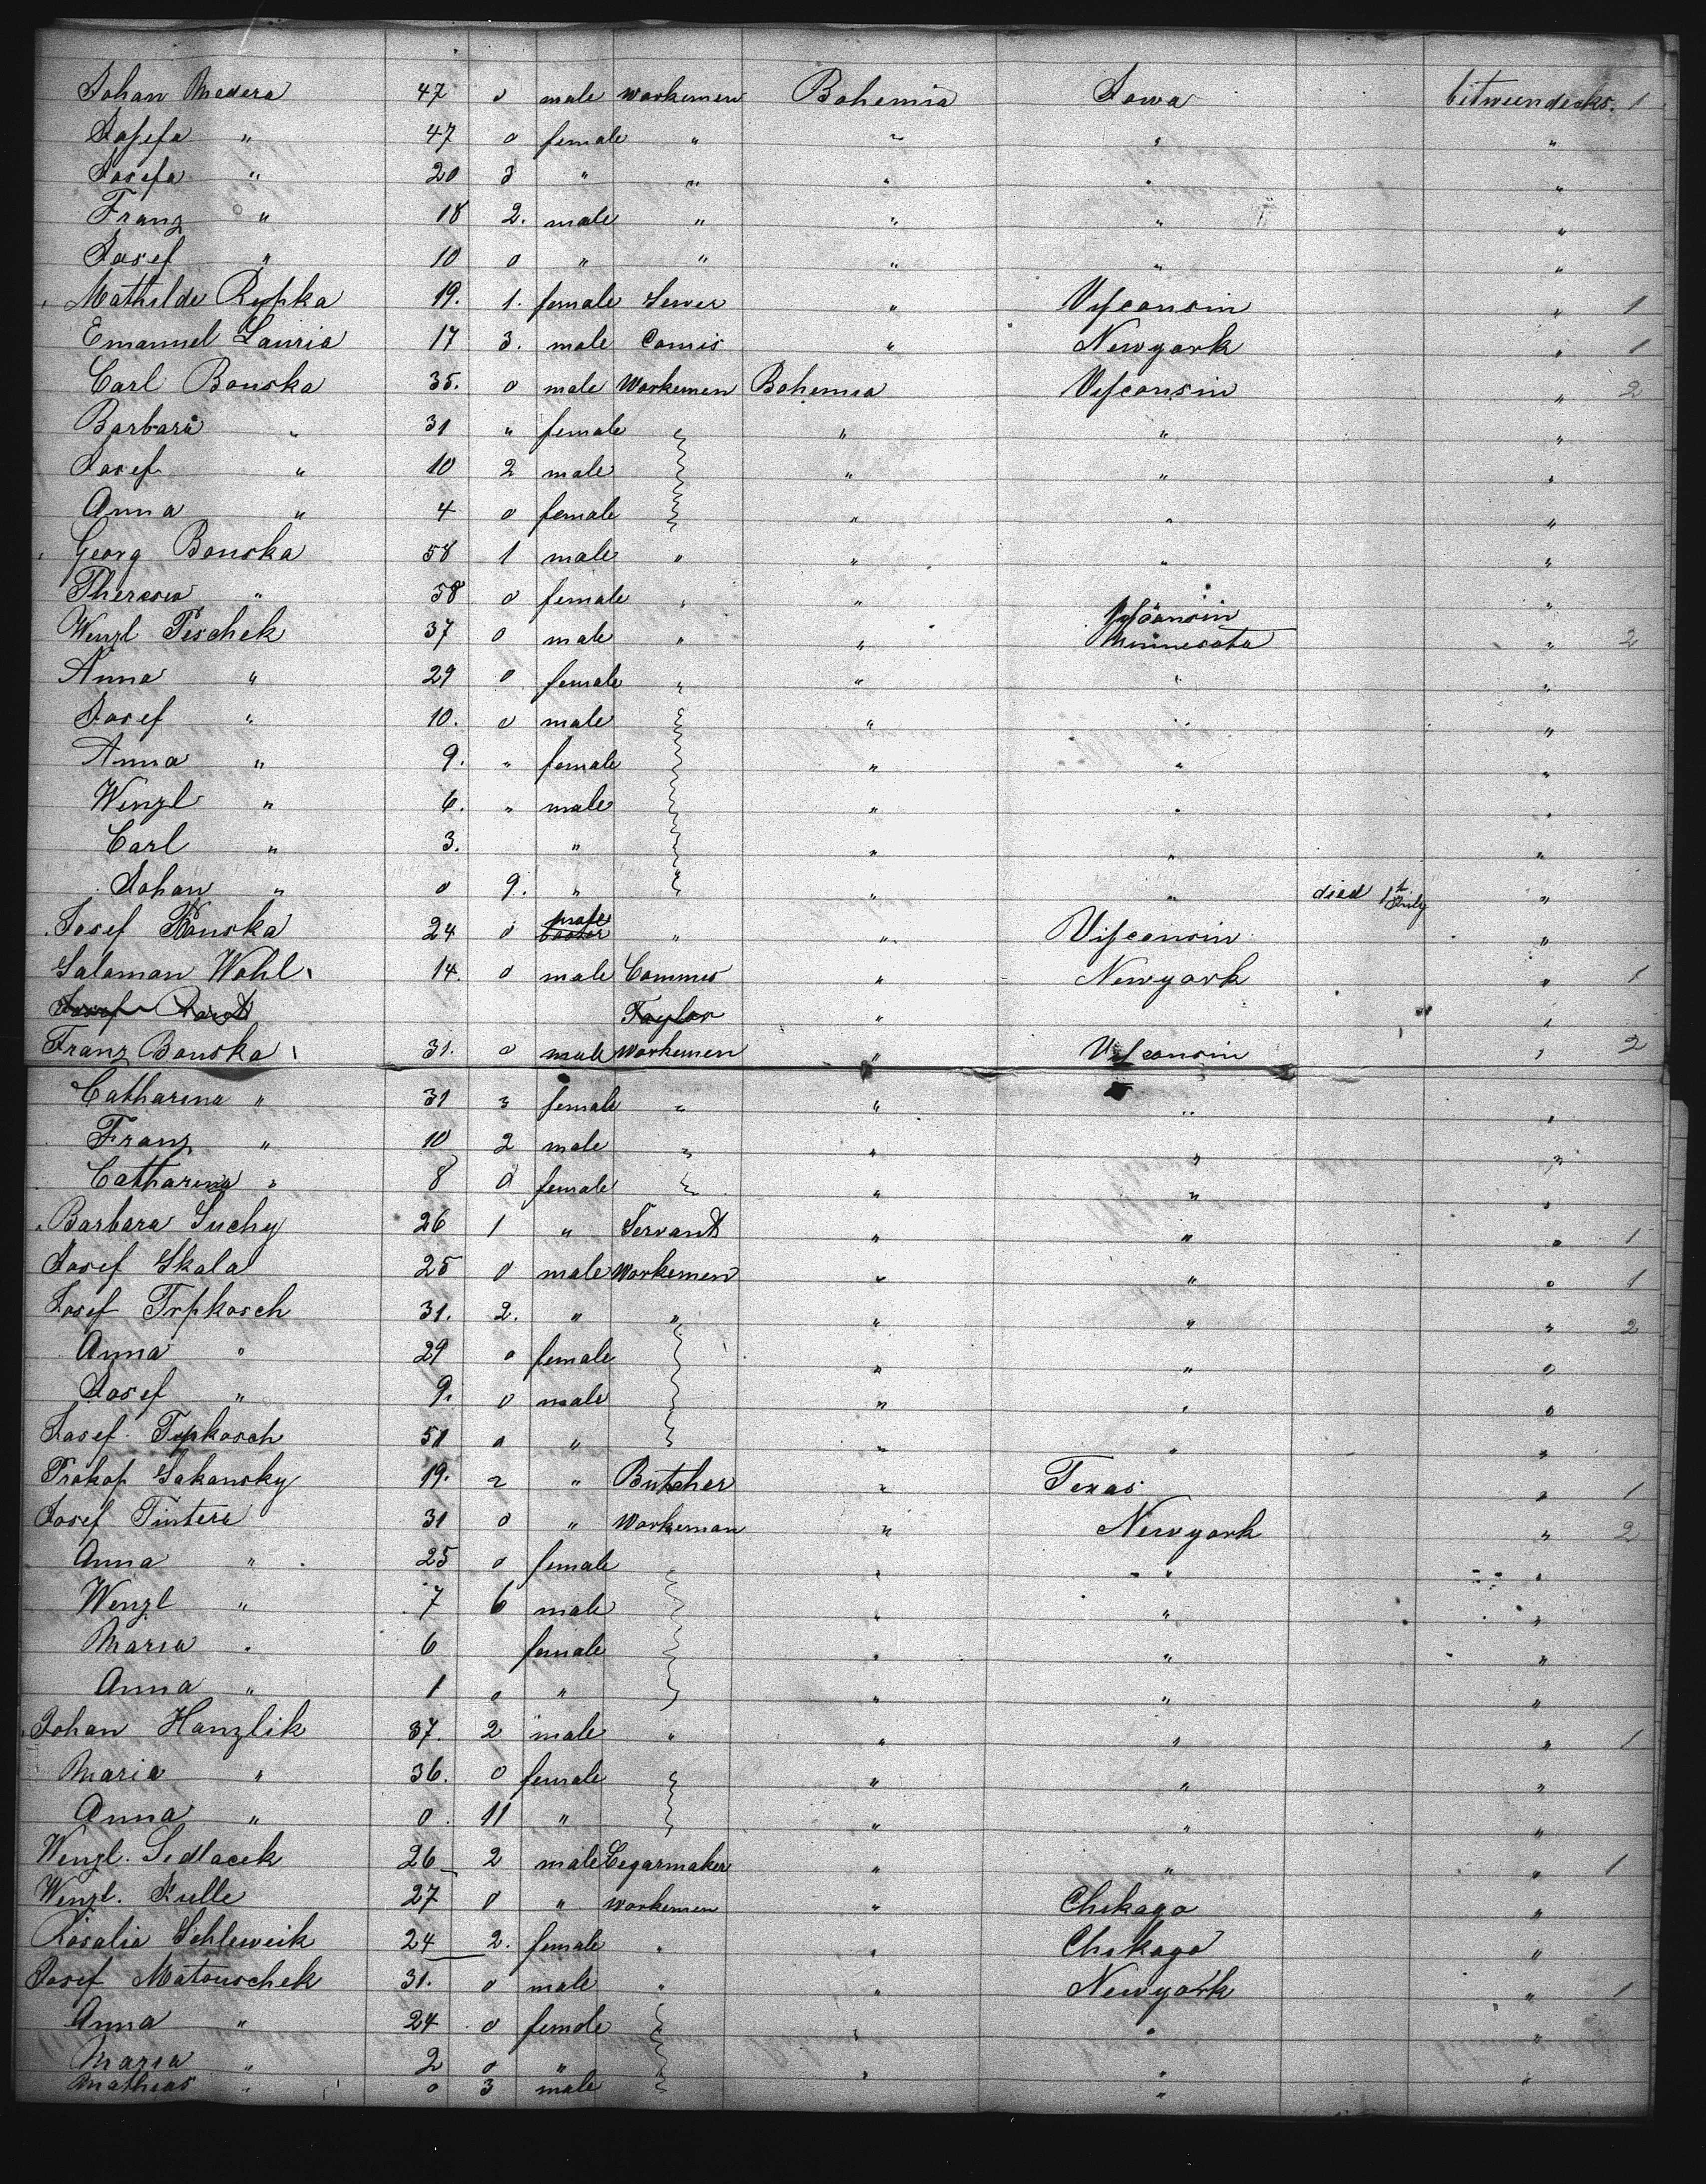 Johan Medera 47 0 male workemen Bohemia Iowa bitweendecks. 1
Josefa " 47 0 female " " " "
Josefa " 20 3 " " " " "
Franz " 18 2. male " " " "
Josef " 10 0 " " " " "
Mathilde Repka 19. 1. female Sewer " Visconsin " 1
Emanuel Lauria 17 3. male Comis " Newyork " 1
Carl Bouska 35. 0 male Workemen Bohemia Visconsin " 2
Barbara " 31 " female " " "
Josef " 10 2 male " " "
Anna " 4 0 female " " "
Georg Bouska 58 1 male " " " "
Theresia " 58 0 female " " "
Visconsin
Wenzl Peschek 37 0 male " " Minnesota " 2
Anna " 29 0 female " " " "
Josef " 10. 0 male " " "
Anna " 9. " female " " "
Wenzl " 6. " male " " "
Carl " 3. " " " "
Johan " 0 9. " " " died 1t July "
Josef Bouska 24 0 male " " Visconsin "
Salaman Wohl 14. 0 male Commes " Newyork " 1
Josef Taylor "
Franz Bouska 31. 0 male Workemen " Visconsin " 2
Catharina " 31 3 female " " " "
Franz " 10 2 male " " " "
Catharina " 8 0 female " " "
Barbara Suchy 26 1 " Servant " " " 1
Josef Skala 25 0 male Workemen " " " 1
Josef Trpkosch 31. 2. " " " " " 2
Anna " 29 0 female " " "
Josef " 9. 0 male " " "
Josef Trpkosch 51 0 " " " "
Prokop Sakansky 19. 2 " Butcher " Texas " 1
Josef Tintera 31 0 " Workeman " Newyork " 2
Anna " 25 0 female " " "
Wenzl " 7 6 male " " "
Maria " 6 female " " "
Anna " 1 0 " " " "
Johan Hanzlik 37. 2 male " " " " 1
Maria " 36. 0 female " " "
Anna " 0. 11 " " " "
Wenzl. Sedlacek 26 2 male Cegarmaker " " " 1
Wenzl. Kulle 27 0 " workemen " Chikago "
Rosalia Schleweik 24 2. female " " Chikago "
Josef Matouschek 31. 0 male " " Newyork " 1
Anna " 24 0 female " " "
Maria " 2 0 " " " "
Mathias " 0 3 male "